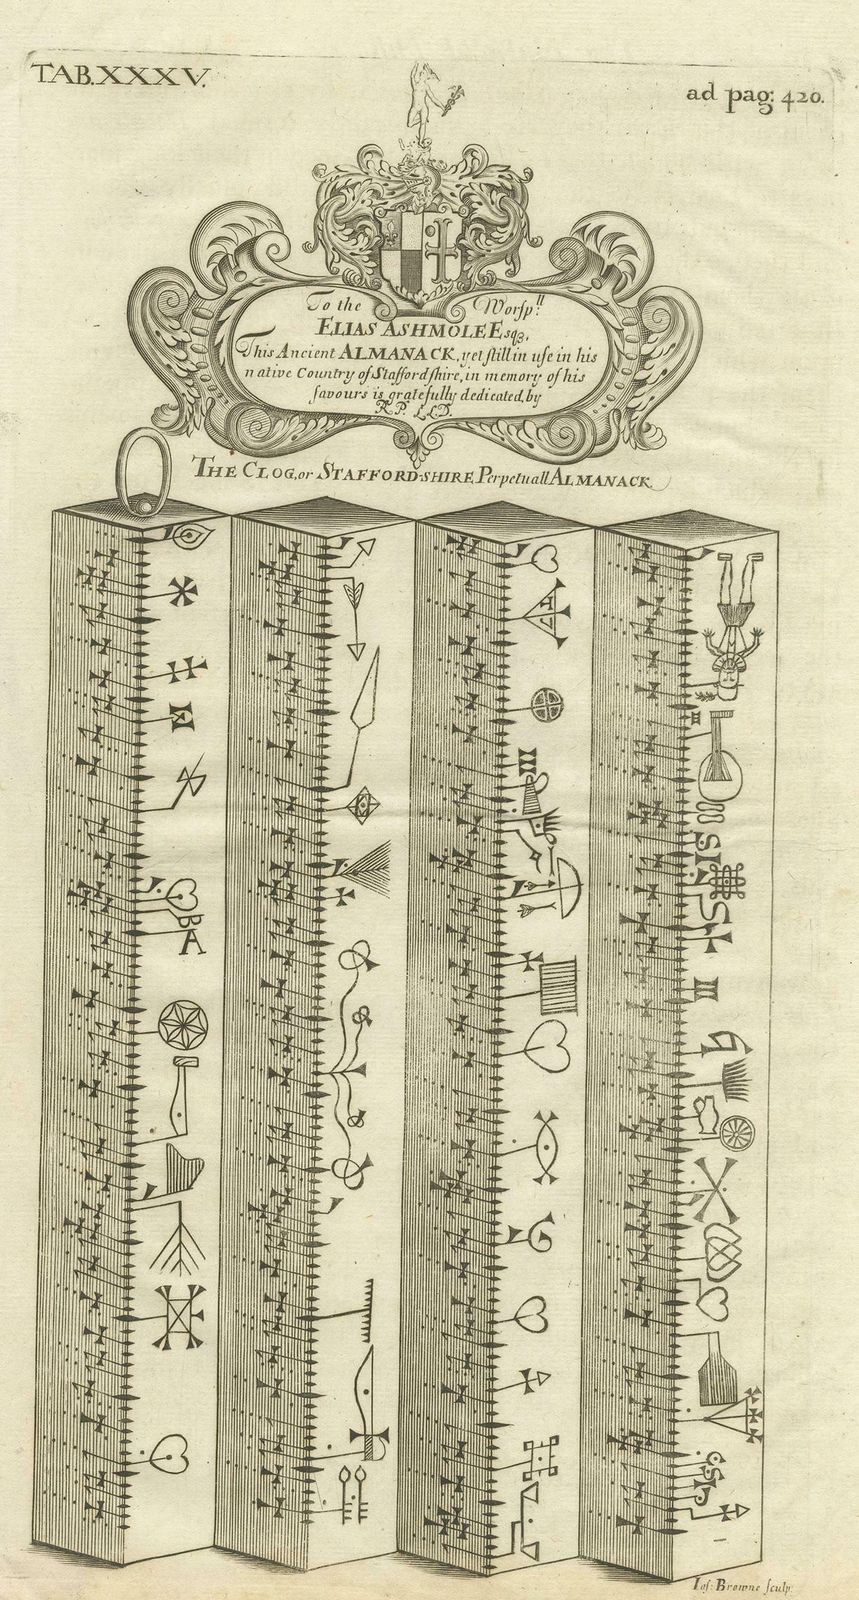 TAB. XXXV.
ad pag: 420.
To the Worsp.ll
ELIAS ASHMOLE Esqȝ,
This Ancient ALMANACK, yet still in use in his
native Country of Staffordshire, in memory of his
favours is gratefully dedicated, by
R.P. L.L.D.
THE CLOG, or STAFFORD-SHIRE Perpetuall ALMANACK.
B
A
Ios: Browne sculp.